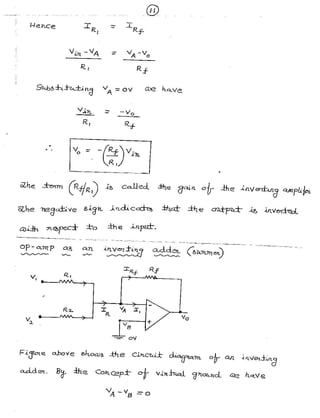 11
Hence I_R1 = I_Rf
V_in - V_A / R_1 = V_A - V_o / R_f
Substituting V_A = 0V we have
V_in / R_1 = -V_o / R_f
∴ V_o = -(R_f / R_1) V_in
The term (R_f/R_1) is called the gain of the inverting amplifier
The negative sign indicates that the output is inverted
with respect to the input.
OP-amp as an inverting adder (summer)
I_Rf R_f
V_1 R_1
R_2 I_R V_A I_1
V_2 V_B V_o
- +
0V
Figure above shows the circuit diagram of an inverting
adder. By the concept of virtual ground we have
V_A - V_B = 0